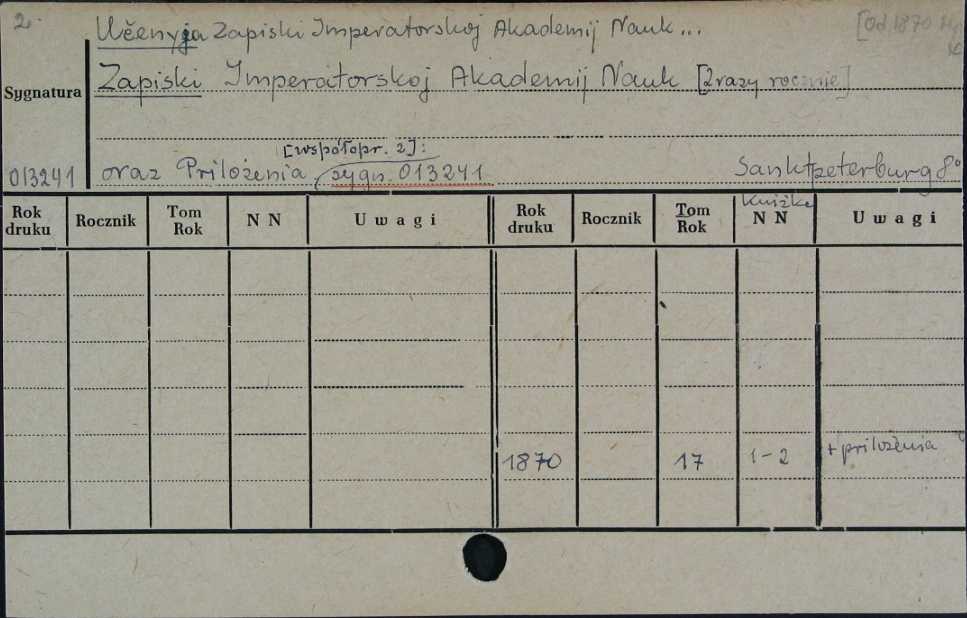 2.
Učenyja Zapiski Imperatorskoj Akademij Nauk...
[Od 1870
Sygnatura
Zapiski Imperatorskoj Akademij Nauk [2 razy rocznie]
[współopr. z]:
013241
oraz Priloženia sygn. 013241
Sanktpeterburg 8°
Rok druku Rocznik Tom Rok N N Uwagi Rok druku Rocznik Tom Rok Knižke N N Uwagi
1870 17 1-2 + priloženia